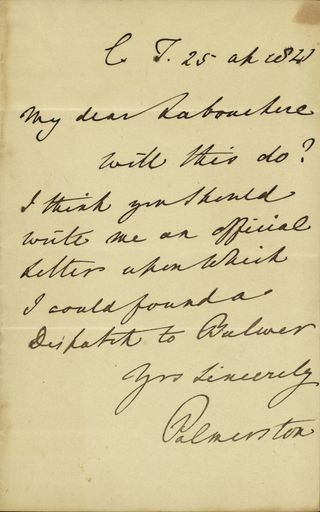 C T. 25 ap 184
My dear Labouchere
will this do?
I think you should
write me an official
Letter upon which
I could found a
Dispatch to Bulwer
Yrs sincerely
Palmerston